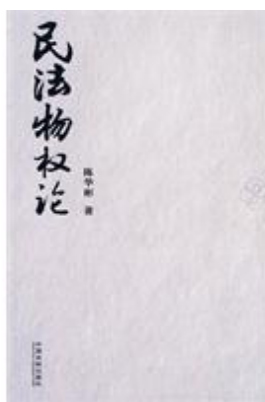 民法物权论
陈华彬 著
中国法制出版社